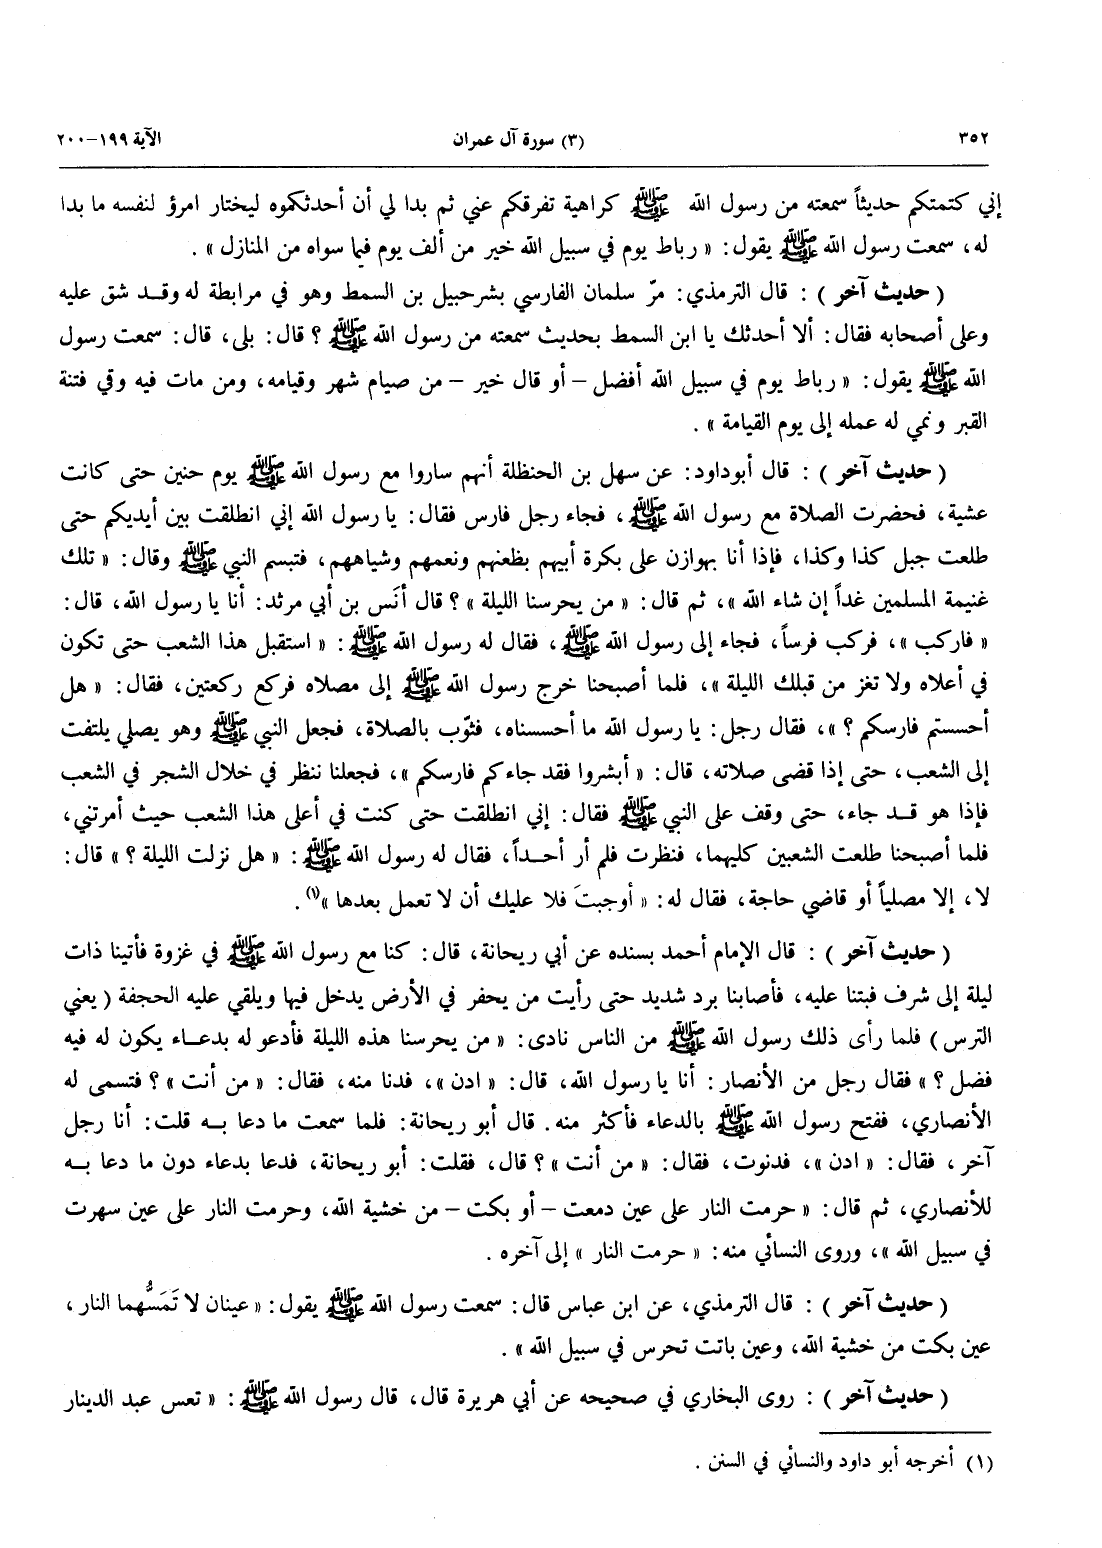 ٣٥٢ (٣) سورة آل عمران الآية ١٩٩-٢٠٠
إني كتمتكم حديثاً سمعته من رسول الله ﷺ كراهية تفرقكم عني ثم بدا لي أن أحدثكموه ليختار امرؤ لنفسه ما بدا
له، سمعت رسول الله ﷺ يقول: « رباط يوم في سبيل الله خير من ألف يوم فيما سواه من المنازل » .
( حديث آخر ) : قال الترمذي: مرّ سلمان الفارسي بشرحبيل بن السمط وهو في مرابطة له وقد شق عليه
وعلى أصحابه فقال: ألا أحدثك يا ابن السمط بحديث سمعته من رسول الله ﷺ ؟ قال: بلى، قال: سمعت رسول
الله ﷺ يقول: « رباط يوم في سبيل الله أفضل – أو قال خير – من صيام شهر وقيامه، ومن مات فيه وقي فتنة
القبر ونمي له عمله إلى يوم القيامة » .
( حديث آخر ) : قال أبوداود: عن سهل بن الحنظلة أنهم ساروا مع رسول الله ﷺ يوم حنين حتى كانت
عشية، فحضرت الصلاة مع رسول الله ﷺ، فجاء رجل فارس فقال: يا رسول الله إني انطلقت بين أيديكم حتى
طلعت جبل كذا وكذا، فإذا أنا بهوازن على بكرة أبيهم بظعنهم ونعمهم وشياههم، فتبسم النبي ﷺ وقال: « تلك
غنيمة المسلمين غداً إن شاء الله »، ثم قال: « من يحرسنا الليلة » ؟ قال أنَس بن أبي مرثد: أنا يا رسول الله، قال:
« فاركب »، فركب فرساً، فجاء إلى رسول الله ﷺ، فقال له رسول الله ﷺ: « استقبل هذا الشعب حتى تكون
في أعلاه ولا تغز من قبلك الليلة »، فلما أصبحنا خرج رسول الله ﷺ إلى مصلاه فركع ركعتين، فقال: « هل
أحسستم فارسكم ؟ »، فقال رجل: يا رسول الله ما أحسسناه، فثوّب بالصلاة، فجعل النبي ﷺ وهو يصلي يلتفت
إلى الشعب، حتى إذا قضى صلاته، قال: « أبشروا فقد جاءكم فارسكم »، فجعلنا ننظر في خلال الشجر في الشعب
فإذا هو قد جاء، حتى وقف على النبي ﷺ فقال: إني انطلقت حتى كنت في أعلى هذا الشعب حيث أمرتني،
فلما أصبحنا طلعت الشعبين كليهما، فنظرت فلم أر أحداً، فقال له رسول الله ﷺ: « هل نزلت الليلة ؟ » قال:
لا، إلا مصلياً أو قاضي حاجة، فقال له: « أوجبتَ فلا عليك أن لا تعمل بعدها »(١) .
( حديث آخر ) : قال الإمام أحمد بسنده عن أبي ريحانة، قال: كنا مع رسول الله ﷺ في غزوة فأتينا ذات
ليلة إلى شرف فبتنا عليه، فأصابنا برد شديد حتى رأيت من يحفر في الأرض يدخل فيها ويلقي عليه الحجفة ( يعني
الترس ) فلما رأى ذلك رسول الله ﷺ من الناس نادى: « من يحرسنا هذه الليلة فأدعو له بدعاء يكون له فيه
فضل ؟ » فقال رجل من الأنصار: أنا يا رسول الله، قال: « ادن »، فدنا منه، فقال: « من أنت » ؟ فتسمى له
الأنصاري، ففتح رسول الله ﷺ بالدعاء فأكثر منه. قال أبو ريحانة: فلما سمعت ما دعا به قلت: أنا رجل
آخر، فقال: « ادن »، فدنوت، فقال: « من أنت » ؟ قال، فقلت: أبو ريحانة، فدعا بدعاء دون ما دعا به
للأنصاري، ثم قال: « حرمت النار على عين دمعت – أو بكت – من خشية الله، وحرمت النار على عين سهرت
في سبيل الله »، وروى النسائي منه: « حرمت النار » إلى آخره .
( حديث آخر ) : قال الترمذي، عن ابن عباس قال: سمعت رسول الله ﷺ يقول: « عينان لا تَمَسُّهما النار،
عين بكت من خشية الله، وعين باتت تحرس في سبيل الله » .
( حديث آخر ) : روى البخاري في صحيحه عن أبي هريرة قال، قال رسول الله ﷺ: « تعس عبد الدينار
(١) أخرجه أبو داود والنسائي في السنن .